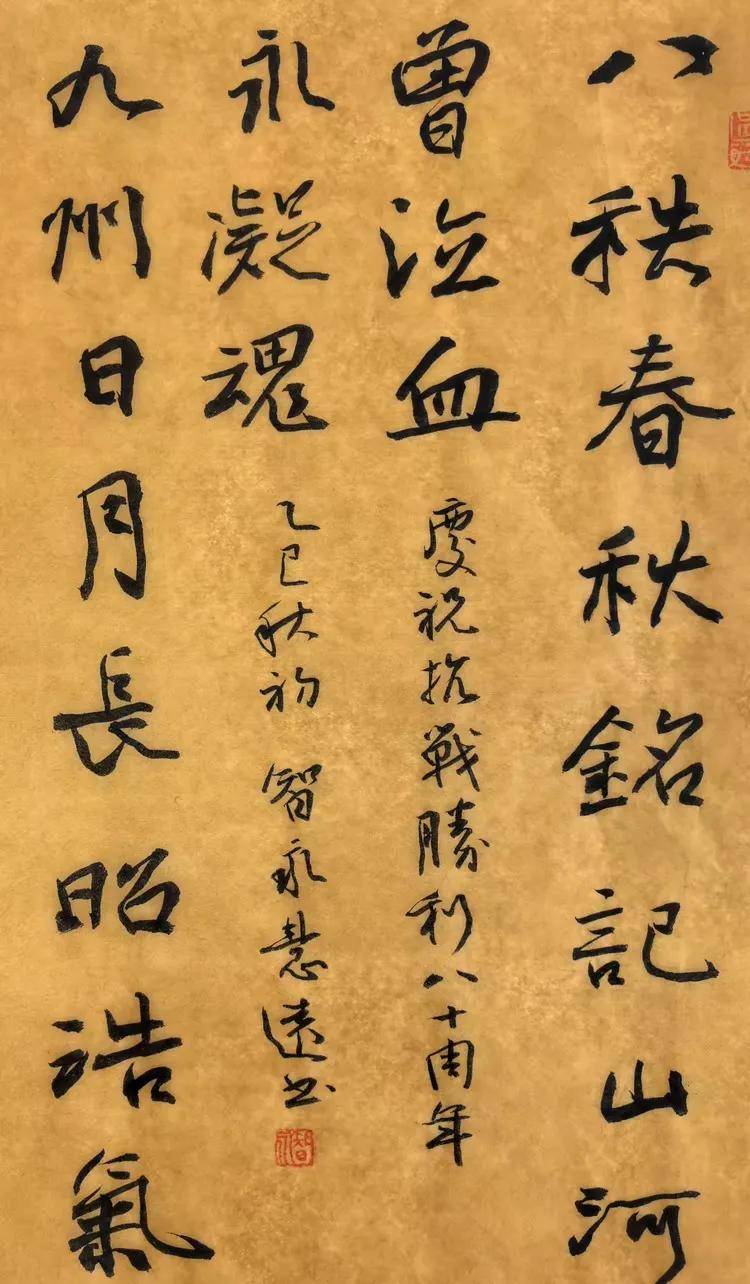 八秩春秋銘記山河
曾泣血
慶祝抗戰勝利八十周年
九州日月長昭浩氣
永凝魂
乙巳秋初 智永慧遠书
智永